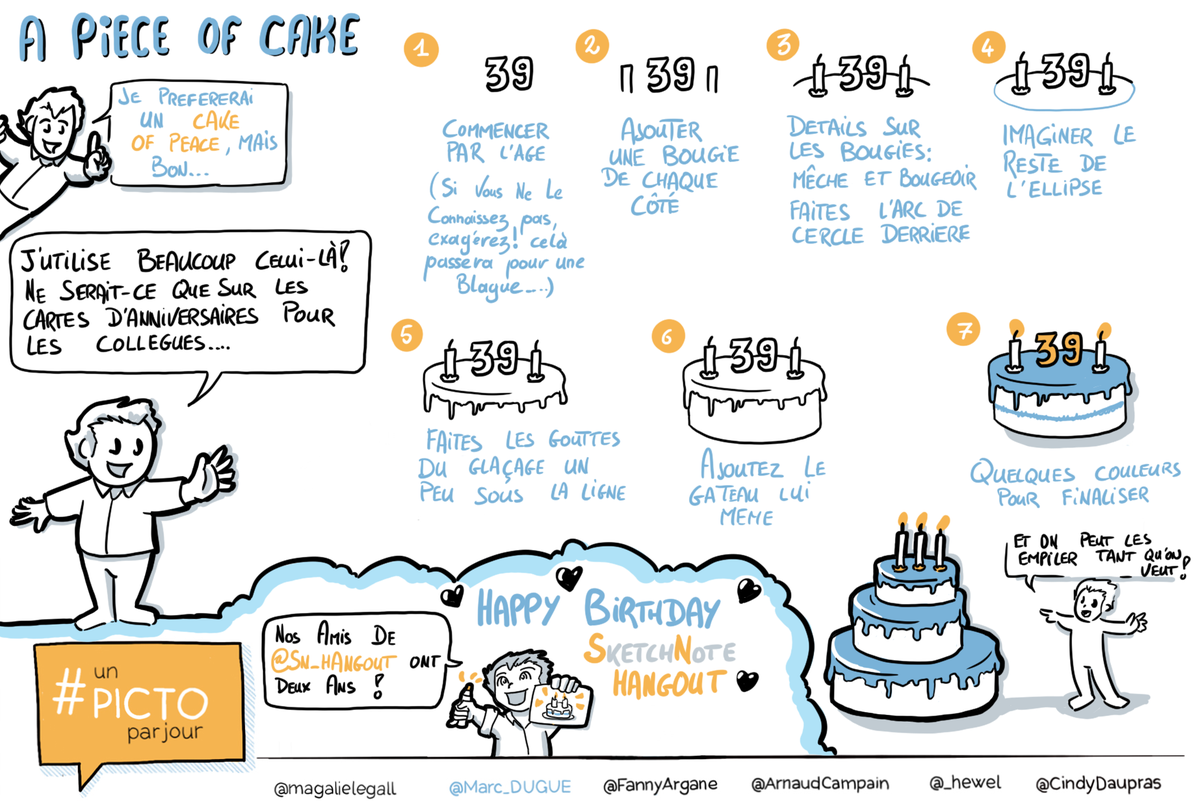 A PIECE OF CAKE
JE PREFERERAI
UN CAKE
OF PEACE, MAIS
BON...
J'UTILISE BEAUCOUP CELUI-LÀ!
NE SERAIT-CE QUE SUR LES
CARTES D'ANNIVERSAIRES POUR
LES COLLEGUES....
1
39
COMMENCER
PAR L'AGE
(Si Vous Ne Le
Connaissez pas,
exagérez! celà
passera pour une
Blague...)
2
39
AJOUTER
UNE BOUGIE
DE CHAQUE
CÔTÉ
3
39
DETAILS SUR
LES BOUGIES:
MÊCHE ET BOUGEOIR
FAITES L'ARC DE
CERCLE DERRIERE
4
39
IMAGINER LE
RESTE DE
L'ELLIPSE
5
39
FAITES LES GOUTTES
DU GLAÇAGE UN
PEU SOUS LA LIGNE
6
39
AJOUTEZ LE
GATEAU LUI
MEME
7
39
QUELQUES COULEURS
POUR FINALISER
ET ON PEUT LES
EMPILER TANT QU'ON
VEUT!
HAPPY BIRTHDAY
SKETCHNOTE
HANGOUT
NOS AMIS DE
@SN_HANGOUT ONT
DEUX ANS !
# un
PICTO
par jour
@magalielegall @Marc_DUGUE @FannyArgane @ArnaudCampain @_hewel @CindyDaupras